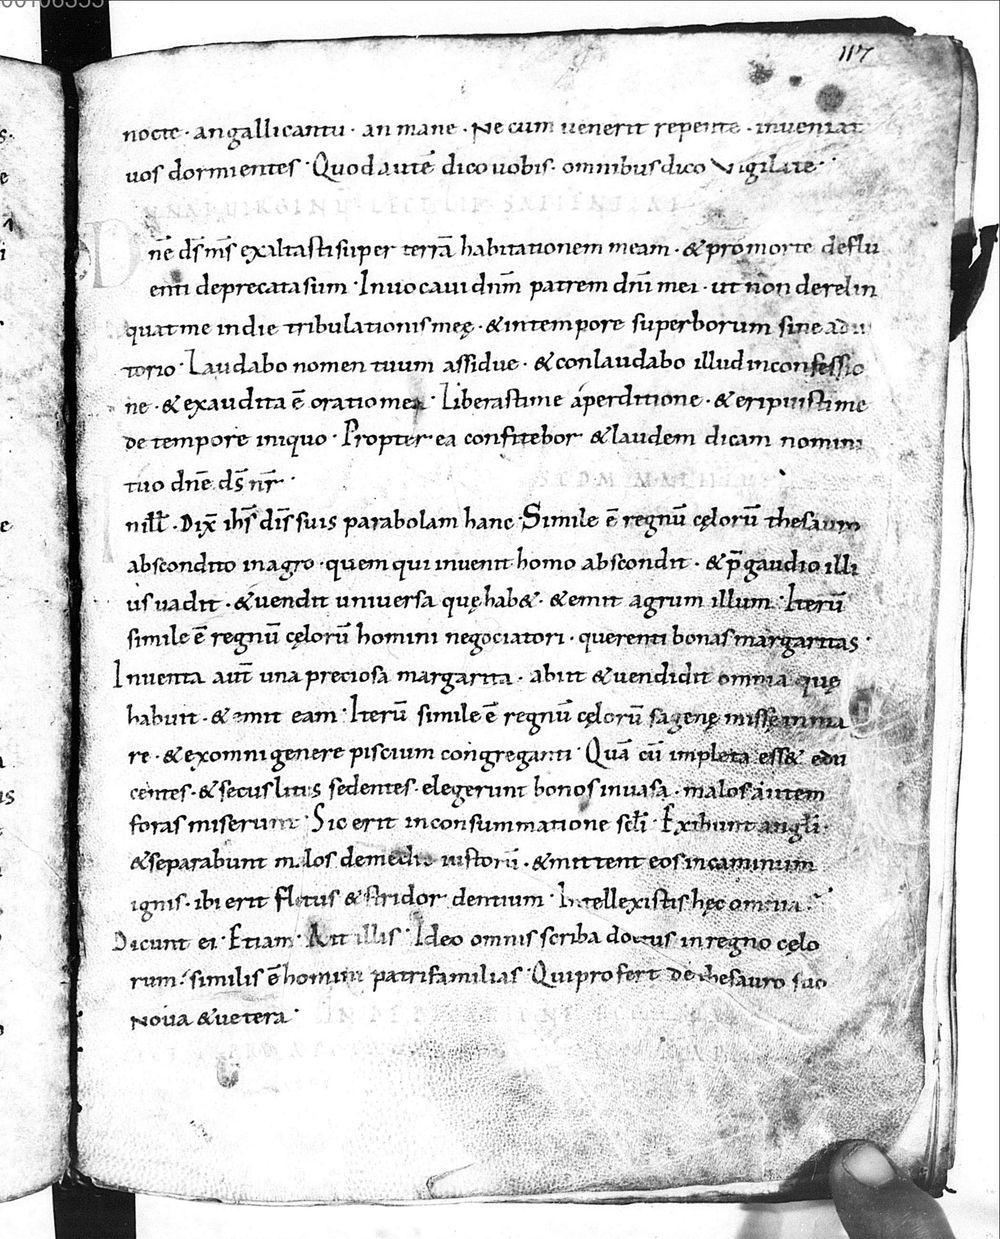 117
nocte · an gallicantu · an mane · Ne cum uenerit repente · inueniat
uos dormientes · Quod autē dico uobis · omnibus dico Vigilate ·
NAT UIRGINU LECT LIB SAPIENTIAE
Dn̄e ds̄ ms̄ exaltasti super terrā habitationem meam · & pro morte deflu
enti deprecata sum · Inuocaui dn̄m patrem dn̄i mei · ut non derelin
quat me in die tribulationis meę · & in tempore superborum sine adiu
torio · Laudabo nomen tuum assidue · & conlaudabo illud in confessio
ne · & exaudita ē oratio mea · Liberasti me a perditione · & eripuisti me
de tempore iniquo · Propterea confitebor & laudem dicam nomini
tuo dn̄e ds̄ nr̄ ·
SCDM MATHEU
In ill̄ · Dix̄ ihs̄ discs suis parabolam hanc · Simile ē regnū cęlorū thesauro
abscondito in agro · quem qui inuenit homo abscondit · & p̄ gaudio illi
us uadit · & uendit uniuersa quę hab& · & emit agrum illum · Iterū
simile ē regnū cęlorū homini negociatori · querenti bonas margaritas ·
Inuenta aut̄ una preciosa margarita · abiit & uendidit omnia quę
habuit · & emit eam · Iterū simile ē regnū cęlorū sagenę missę in ma
re · & ex omni genere piscium congreganti · Quā cū impleta ess& edu
centes · & secus litus sedentes · elegerunt bonos in uasa · malos autem
foras miserunt · Sic erit in consummatione scl̄i · Exibunt angl̄i ·
& separabunt malos de medio iustorū · & mittent eos in caminum
ignis · ibi erit fletus & stridor dentium · Intellexistis hęc omnia ·
Dicunt ei · Etiam · Ait illis · Ideo omnis scriba doctus in regno cęlo
rum · similis ē homini patrifamilias · Qui profert de thesauro suo
Noua & uetera ·